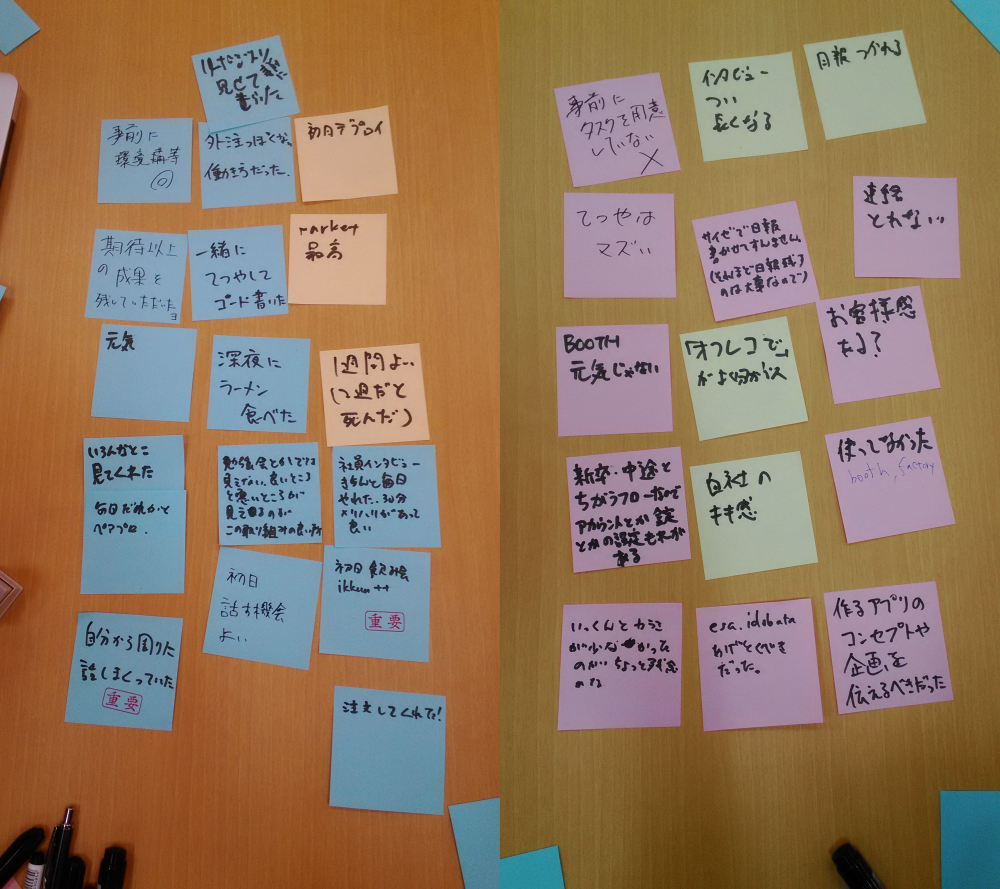 見せて
事前に
環境構築
外注っぽくない
働き方だった.
初日デプロイ
期待以上
の成果を
残していただいた
一緒に
てつやして
コード書いた
market
最高
元気
深夜に
ラーメン
食べた
1週間よい
(2週だと
死んだ)
いろんなとこ
見てくれた
毎日だれかと
ペアプロ.
勉強会とかでは
見えない、良いところ
と悪いところが
見えるのが
この取り組みの良い所
社員インタビュー
きちんと毎日
やれた.30分
メリハリがあって
良い
初日
話す機会
よい
初日飲み会
ikkun ++
重要
自分から周りに
話しまくっていた
重要
注文してくれた!
事前に
タスクを用意
していない
×
インタビュー
つい
長くなる
日報つかれる
てつやは
マズい
サイゼで日報
書かせてすみません
(それほど日報残す
のは大事なので)
連絡
とれない
BOOTH
元気じゃない
「オフレコで」
がよく分からない
お客様感
だる?
新卒・中途と
ちがうフローなので
アカウントとか錠
とかの設定もれが
ある
自社の
キキ感
使ってなかった
booth, factory
いっくんとカラミ
が少なかった
のがちょっと残念
esa, idobata
あげとくべき
だった。
作るアプリの
コンセプトや
企画を
伝えるべきだった